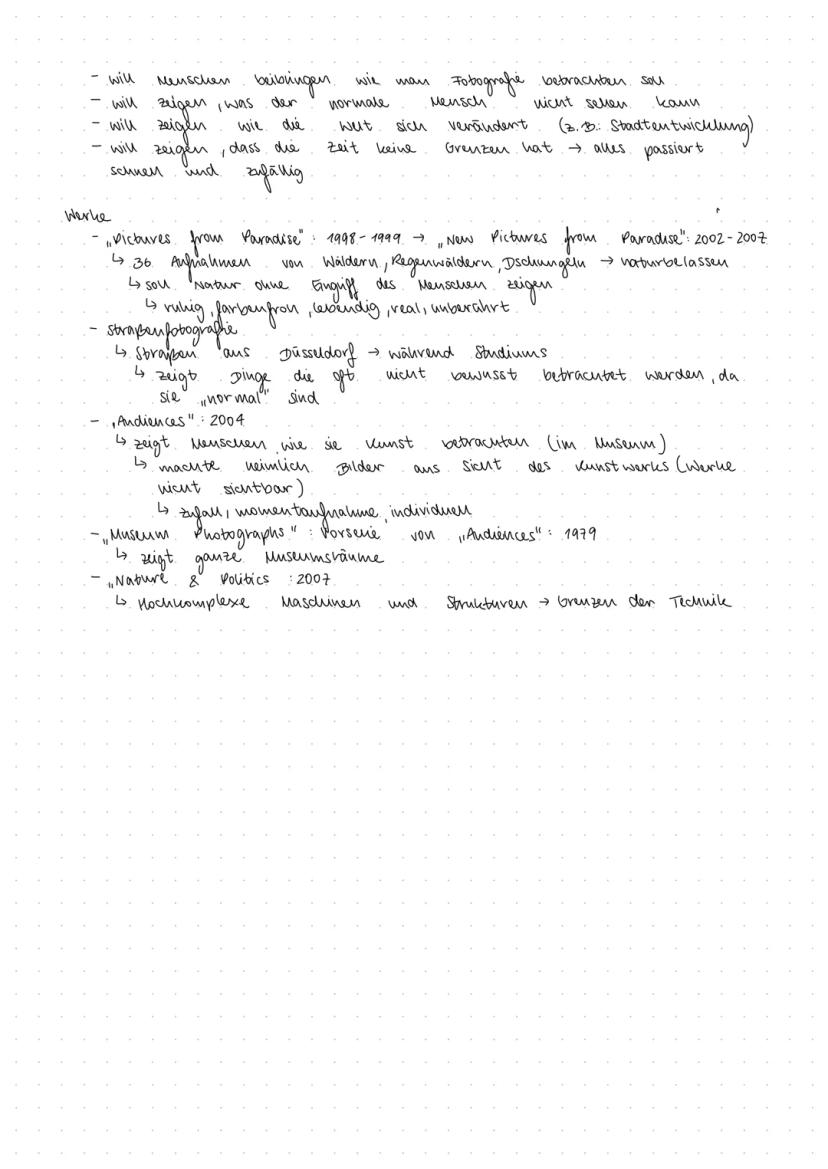 - will Menschen beibringen wie man Fotografie betrachten soll
- will zeigen, was der normale Mensch nicht sehen kann
- will zeigen wie die Welt sich verändert (z.B.: Stadtentwicklung)
- will zeigen, dass die Zeit keine Grenzen hat → alles passiert
schnell und zufällig
Werke
- „Pictures from Paradise" : 1998-1999 → „New Pictures from Paradise": 2002-2007
↳ 36 Aufnahmen von Wäldern, Regenwäldern, Dschungeln → naturbelassen
↳ soll Natur ohne Eingriff des Menschen zeigen
↳ ruhig, farbenfroh, lebendig, real, unberührt
- Straßenfotografie
↳ Straßen aus Düsseldorf → während Studiums
↳ zeigt Dinge die oft nicht bewusst betrachtet werden, da
sie „normal" sind
- „Audiences" : 2004
↳ zeigt Menschen wie sie Kunst betrachten (im Museum)
↳ machte heimlich Bilder aus Sicht des Kunstwerks (Werke
nicht sichtbar)
↳ Zufall, Momentaufnahme, individuell
- „Museum Photographs" : Vorserie von „Audiences" : 1979
↳ zeigt ganze Museumsräume
- „Nature & Politics : 2007
↳ Hochkomplexe Maschinen und Strukturen → Grenzen der Technik